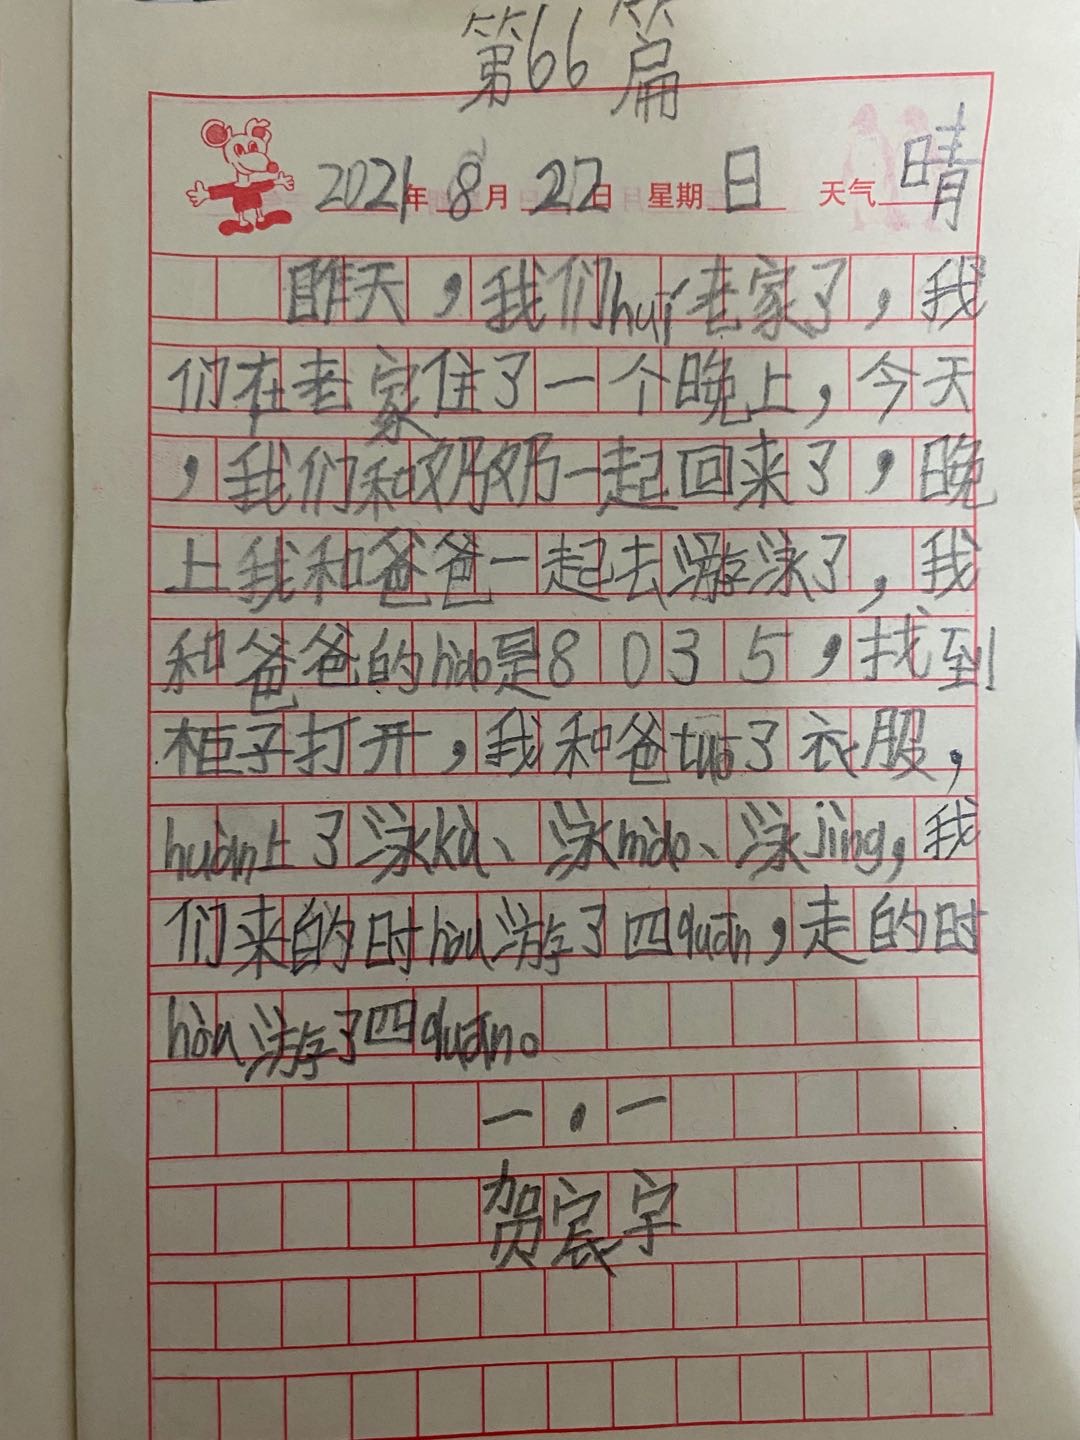 第66篇
2021年8月22日 星期日 天气晴
昨天，我们huí老家了，我
们在老家住了一个晚上，今天
，我们和奶奶一起回来了，晚
上我和爸爸一起去游泳了，我
和爸爸的hào是8035，找到
柜子打开，我和爸tuō了衣服，
huàn上了泳kù、泳mào、泳jìng，我
们来的时hòu游了四quān，走的时
hòu游了四quān。
一·一
贺宸宇